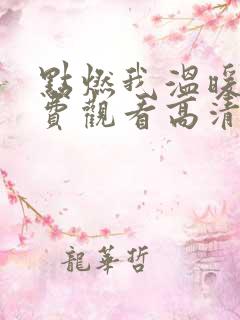 點燃我溫暖
費觀看高清
龍華哲